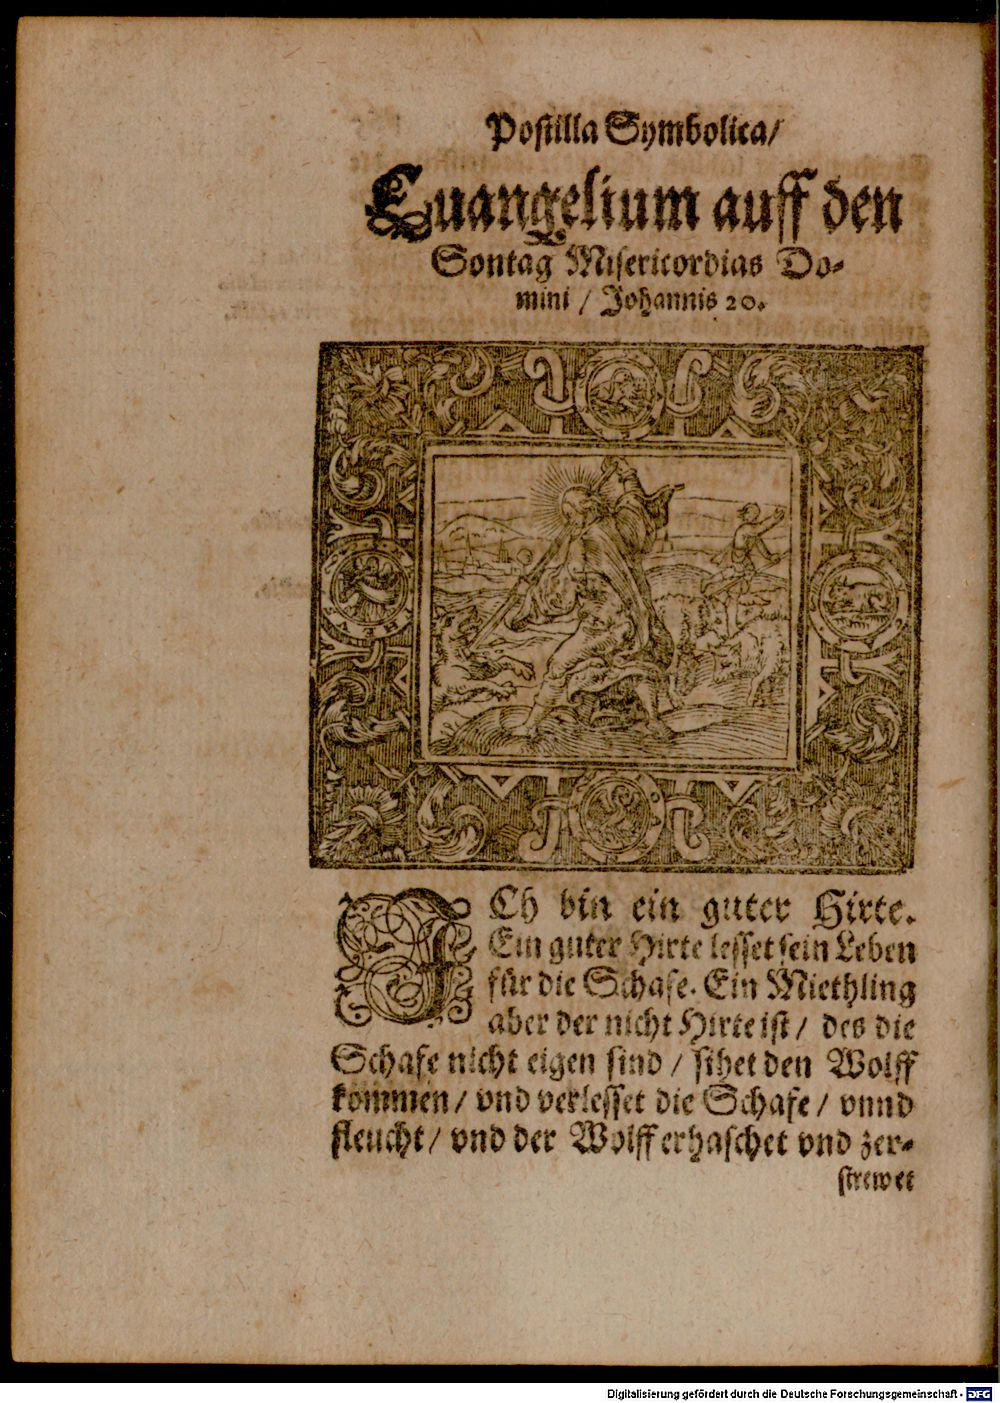 Postilla Symbolica/
Euangelium auff den
Sontag Misericordias Do-
mini / Johannis 20.
ICh bin ein guter Hirte.
Ein guter Hirte lesset sein Leben
für die Schafe. Ein Miethling
aber der nicht Hirte ist / des die
Schafe nicht eigen sind / sihet den Wolff
kommen / vnd verlesset die Schafe / vnnd
fleucht / vnd der Wolff erhaschet vnd zer-
strewet
Digitalisierung gefördert durch die Deutsche Forschungsgemeinschaft - DFG